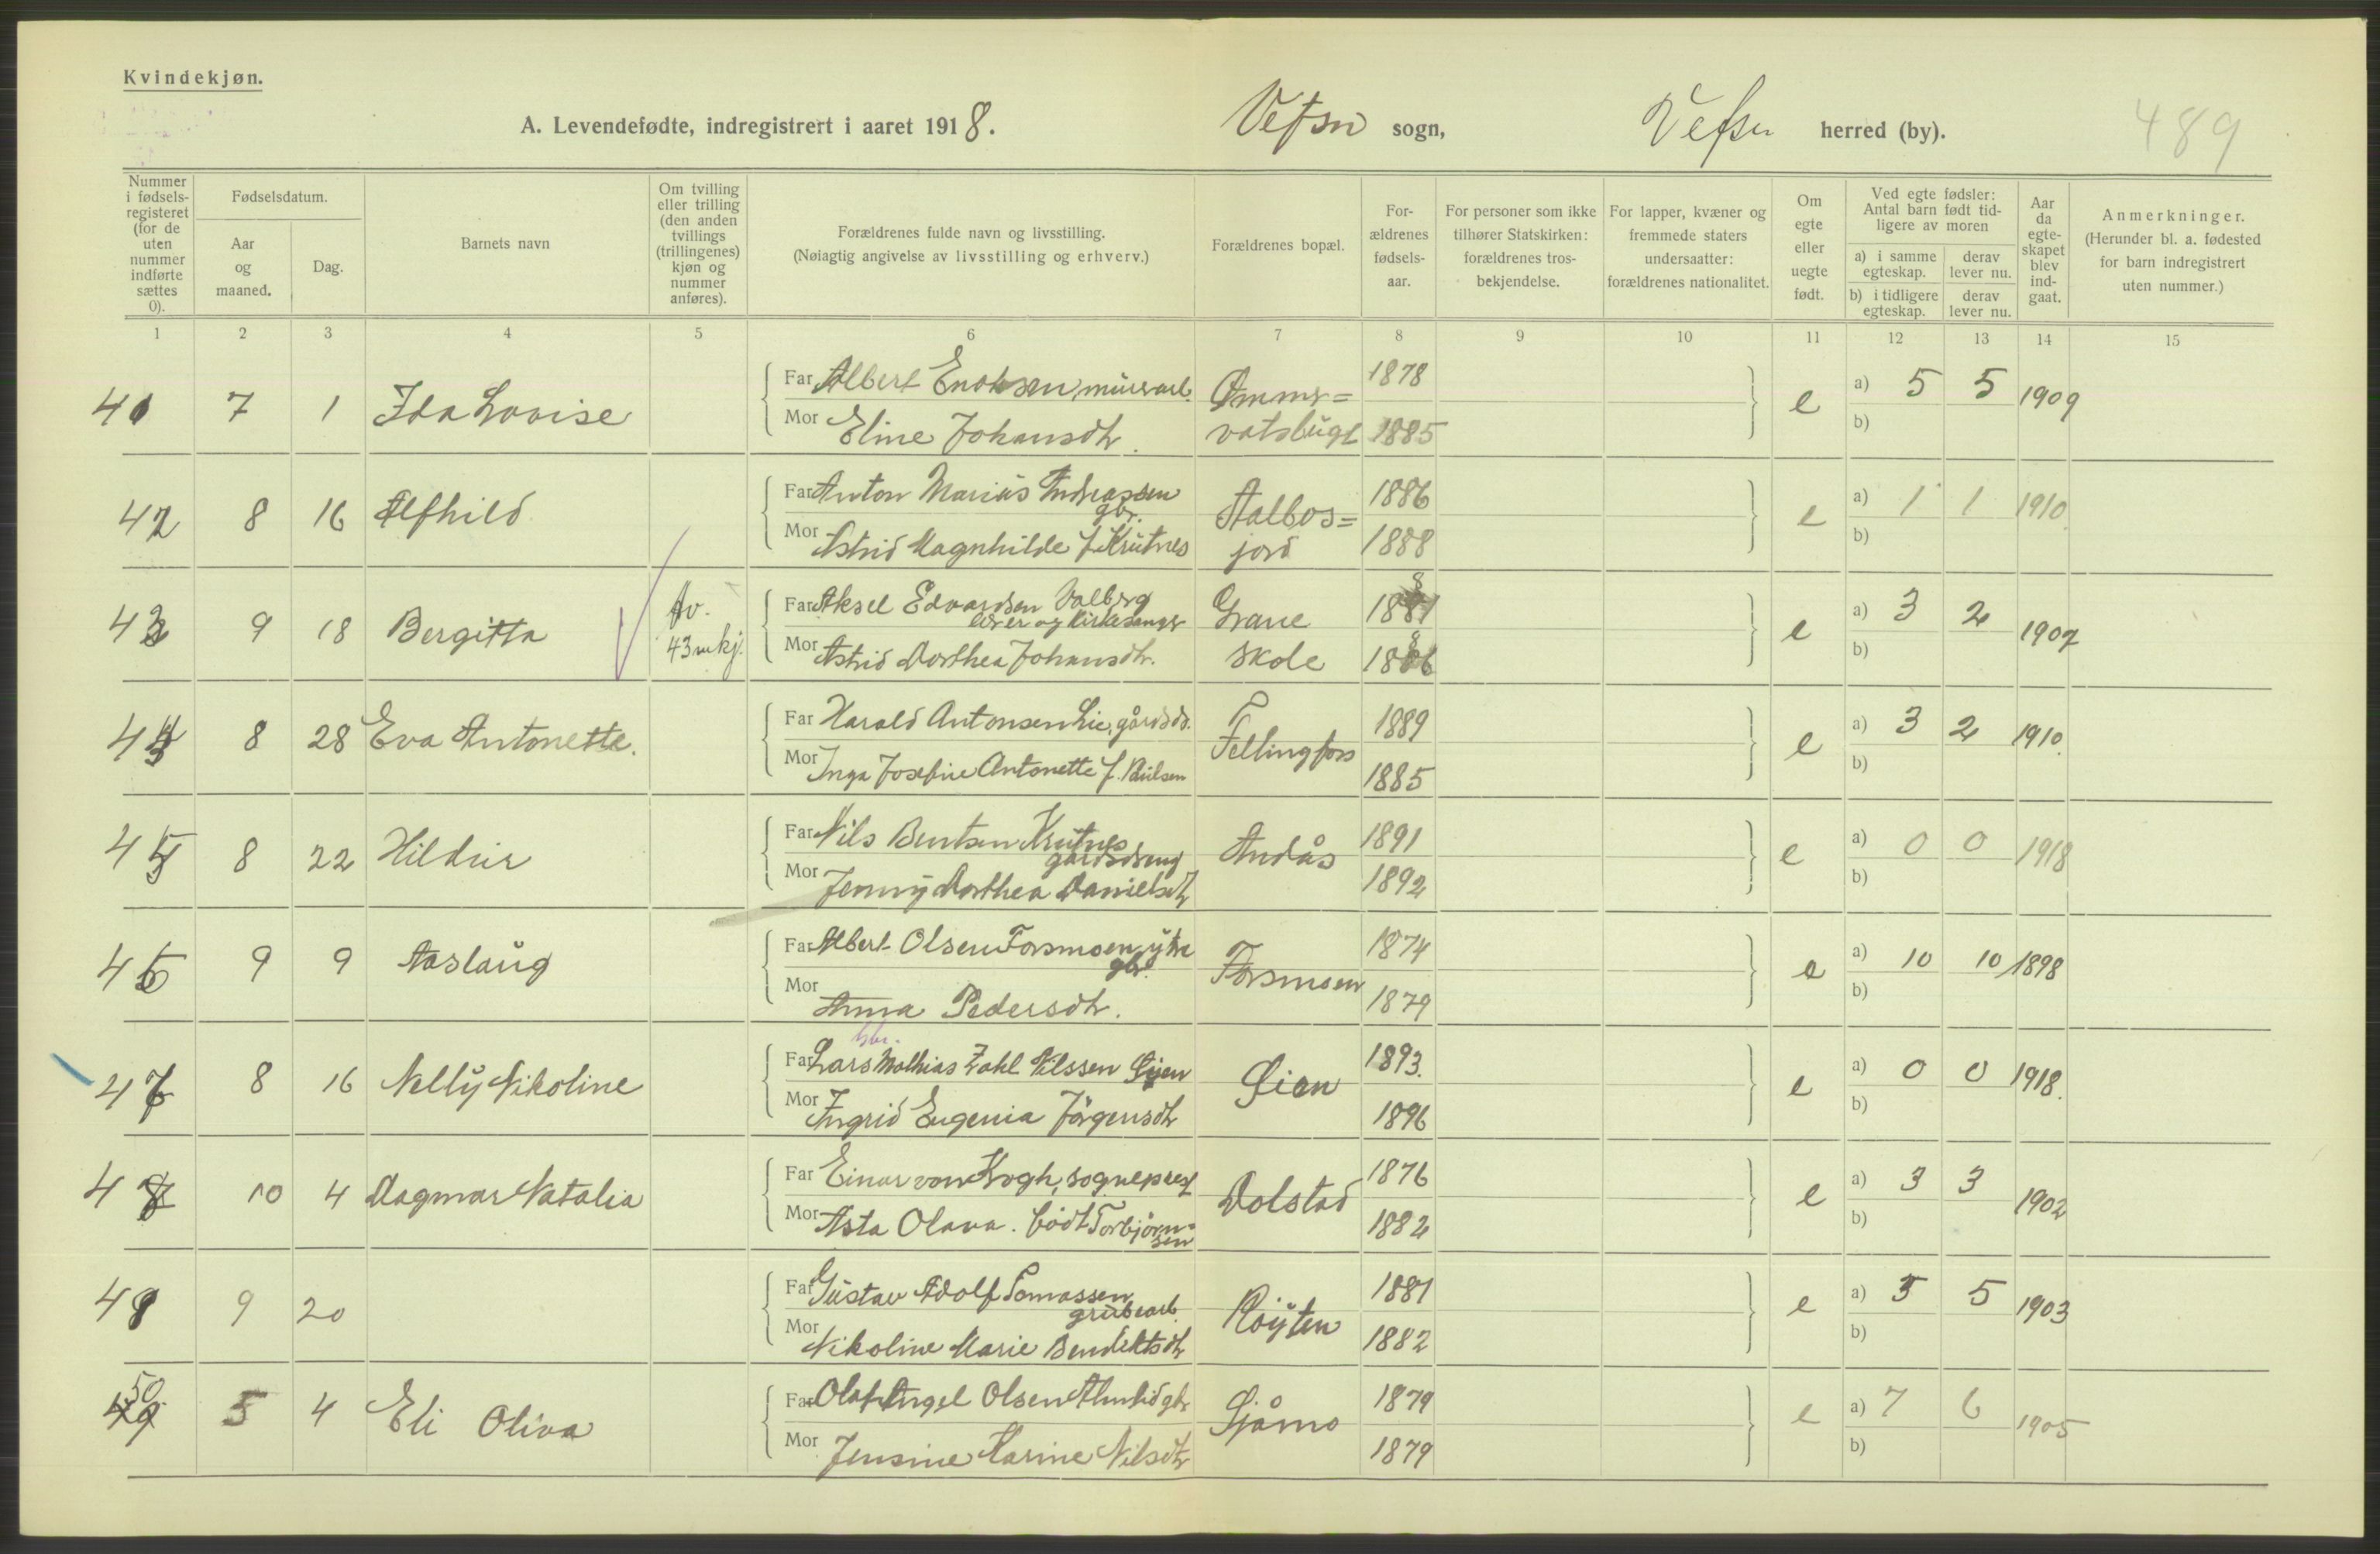 Kvindekjøn.
A. Levendefødte, indregistrert i aaret 1918. Vefsn sogn, Vefsn herred (by). 489
Nummer i fødsels-registeret (for de uten nummer indførte sættes 0).
Fødselsdatum.
Aar og maaned.
Dag.
Barnets navn
Om tvilling eller trilling (den anden tvillings (trillingenes) kjøn og nummer anføres).
Forældrenes fulde navn og livsstilling.
(Nøiagtig angivelse av livsstilling og erhverv.)
Forældrenes bopæl.
For-ældrenes fødsels-aar.
For personer som ikke tilhører Statskirken: forældrenes tros-bekjendelse.
For lapper, kvæner og fremmede staters undersaatter: forældrenes nationalitet.
Om egte eller uegte født.
Ved egte fødsler: Antal barn født tid-ligere av moren
a) i samme egteskap.
derav lever nu.
b) i tidligere egteskap.
derav lever nu.
Aar da egte-skapet blev ind-gaat.
Anmerkninger.
(Herunder bl. a. fødested for barn indregistrert uten nummer.)
1 2 3 4 5 6 7 8 9 10 11 12 13 14 15
41 7 1 Ida Lovise Far Albert Enoksen, murerarb. Ømmer= 1878 e a) 5 5 1909
Mor Eline Johansdtr. vatsbugt 1885 b)
42 8 16 Alfhild Far Anton Marius Andreassen gbr. Aalbos= 1886 e a) 1 1 1910
Mor Astrid Magnhilde f. Krutnes jord 1888 b)
43 9 18 Bergitta Tv. 43 mkj. Far Aksel Edvardsen Valberg lærer og kirkesanger Grane 1881 e a) 3 2 1907
Mor Astrid Dorthea Johansdtr. skole 1886 b)
44 8 28 Eva Antonette. Far Harald Antonsen Lie, gårdsdr. Fellingfors 1889 e a) 3 2 1910.
Mor Inga Josefine Antonette f. Nilsen 1885 b)
45 8 22 Hildur Far Nils Bentsen Krutnes gårdsdreng Andås 1891 e a) 0 0 1918
Mor Jenny Dorthea Danielsdtr 1892 b)
46 9 9 Aaslaug Far Albert Olsen Forsmoen ytre gbr. Forsmoen 1874 e a) 10 10 1898
Mor Anna Pedersdtr. 1879 b)
gbr.
47 8 16 Nelly Nikoline Far Lars Mathias Zahl Nilssen Sjen Sien 1893. e a) 0 0 1918.
Mor Ingrid Eugenia Jörgensdtr 1896 b)
48 10 4 Dagmar Natalia Far Einar von Krogh, sogneprest Dolstad 1876 e a) 3 3 1902
Mor Asta Olava. födt Torbjörn=sen 1882 b)
49 9 20 Far Gustav Adolf Tomassen grubearb. Röyten 1881 e a) 5 5 1903
Mor Nikoline Marie Bendiktsdtr 1882 b)
50 5 4 Eli Oliva Far Olaf Angel Olsen Almlid gbr Sjåmo 1879 e a) 7 6 1905
Mor Jensine Karine Nilsdtr 1879 b)